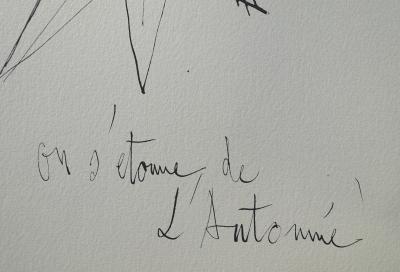 on s'étonne de
L'Antonnié